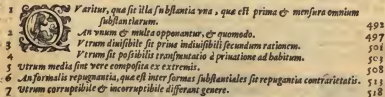 1 Quaritur, quæ sit illa substantia vna, qua est prima & mensura omnium
substantiarum. 492
2 An vnum & multa opponantur, & quomodo. 497
3 Vtrum diuisibile sit prius indiuisibili secundum rationem. 501
4 Vtrum sit possibilis transmutatio à priuatione ad habitum. 503
5 Vtrum media sint vere composita ex extremis. 508
6 An formalis repugnantia, qua est inter formas substantiales sit repugantia contrarietatis. 513
7 Vtrum corruptibile & incorruptibile differant genere. 518